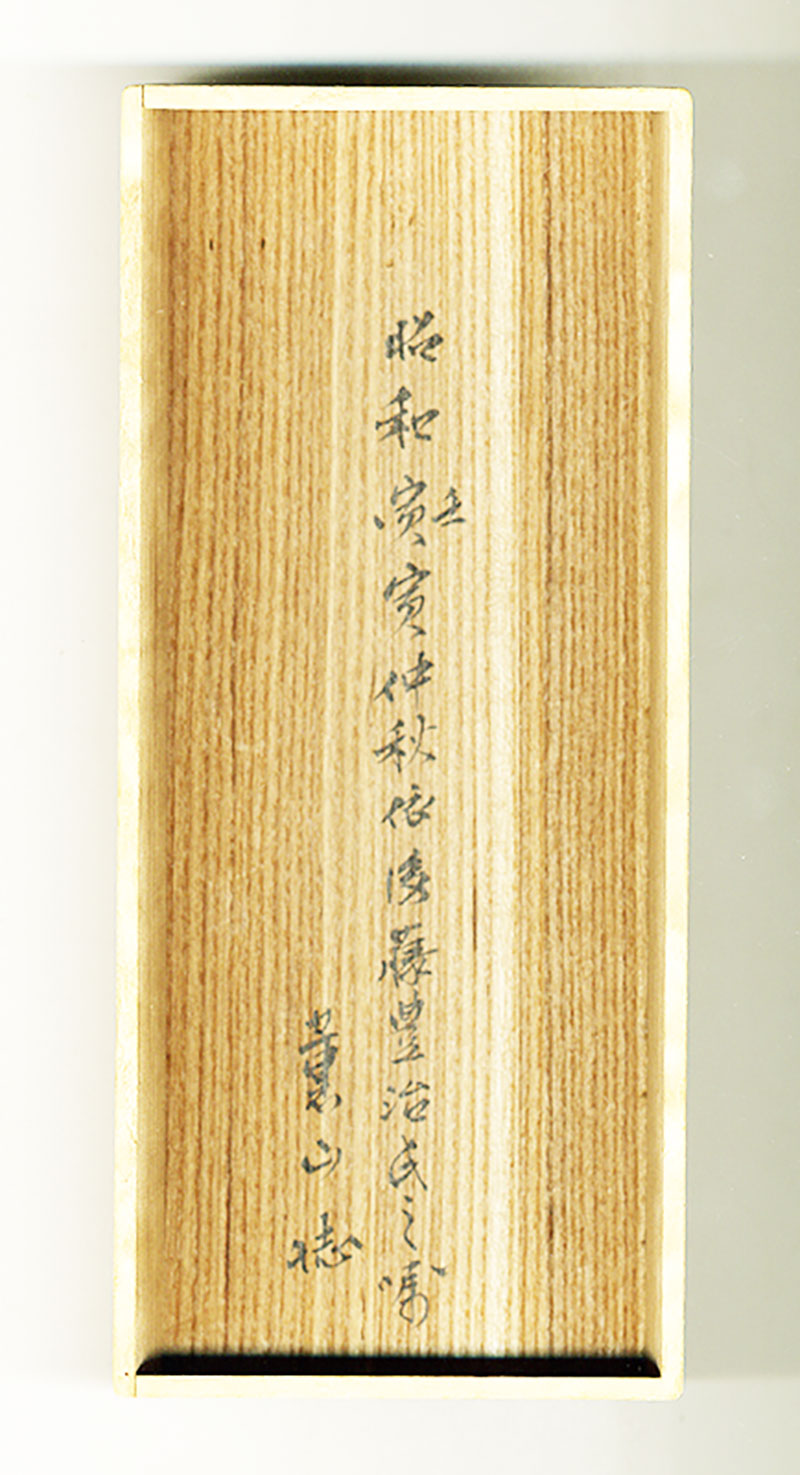 昭和寅壬寅仲秋依後藤豊治氏之嘱
薫山誌